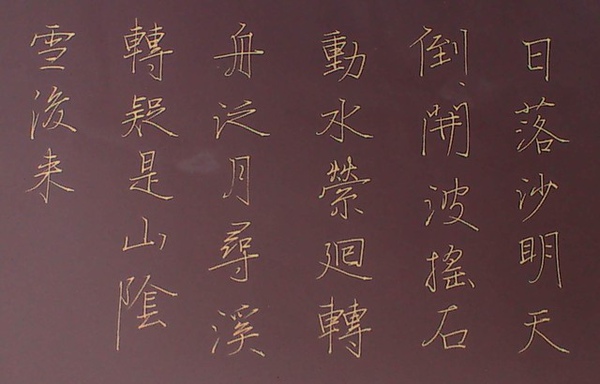 日落沙明天
倒開波搖石
動水縈廻轉
舟泛月尋溪
轉疑是山陰
雪後来